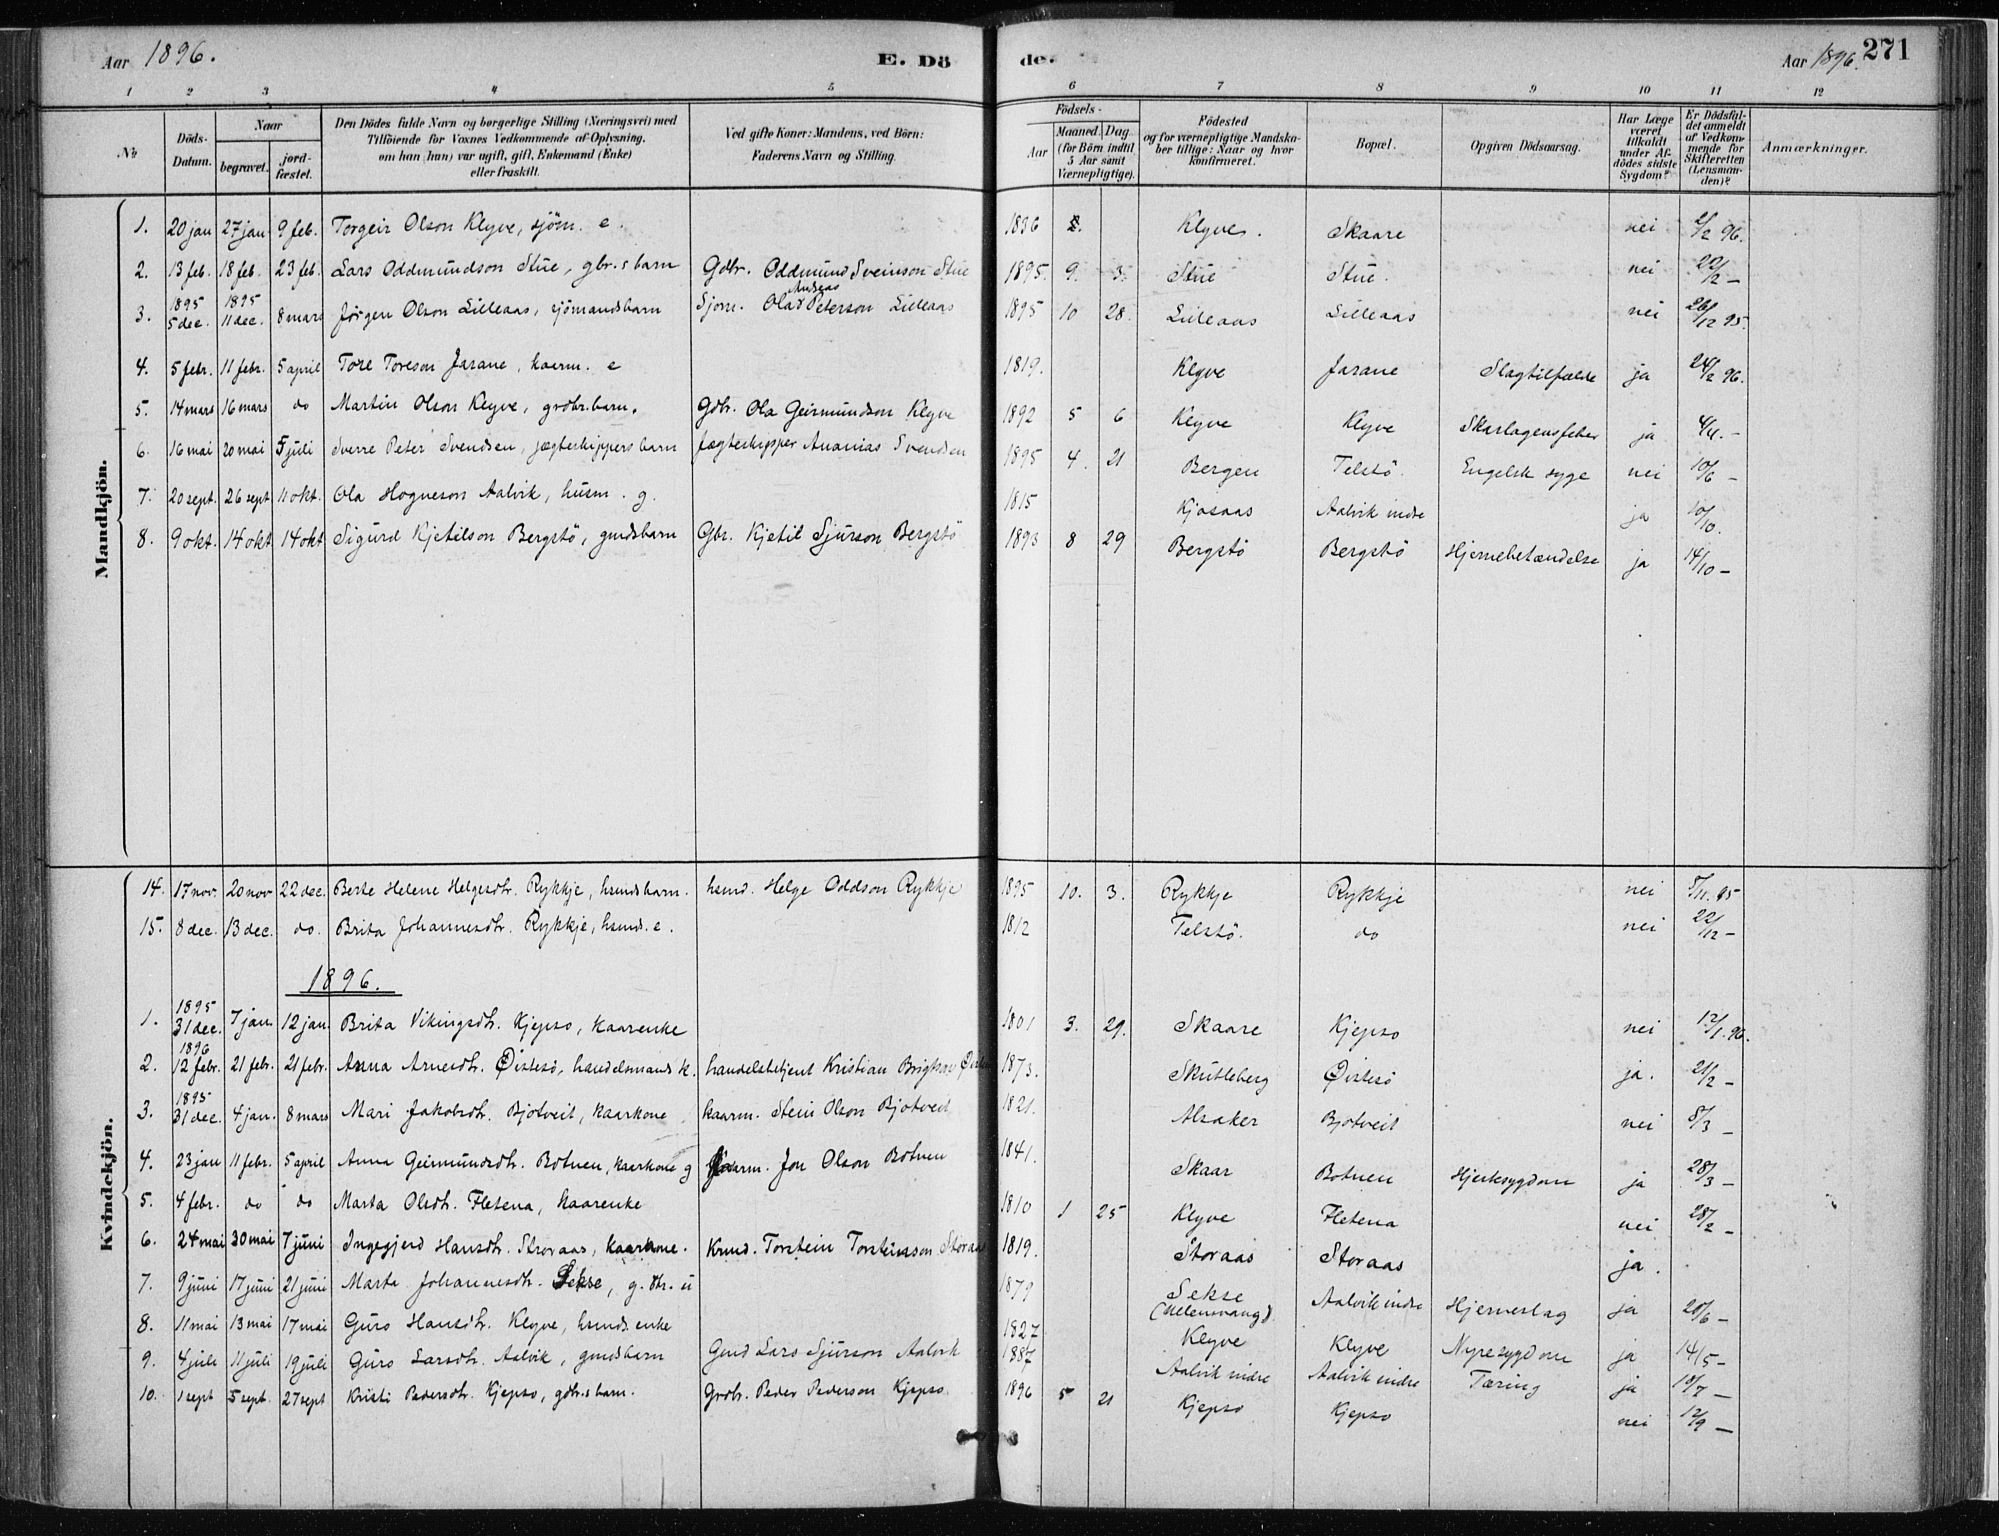 Aar 1896. E. Dö de. Aar 1896. 271
1 2 3 4 5 6 7 8 9 10 11 12
No Döds-Datum. Naar begravet. jord-fæstet. Den Dödes fulde Navn og borgerlige Stilling (Næringsvei) med Tilföiende for Voxnes Vedkommende af Oplysning, om han (hun) var ugift, gift, Enkemand (Enke) eller fraskilt. Ved gifte Koner: Mandens, ved Börn: Faderens Navn og Stilling. Födsels- Aar Maaned. Dag (for Börn indtil 5 Aar samt Værnepligtige). Födested og for værnepligtige Mandskaber tillige: Naar og hvor konfirmeret. Bopæl. Opgiven Dödsaarsag. Har Læge været tilkaldt under Afdödes sidste Sygdom? Er Dödsfaldet anmeldt af Vedkommende for Skifteretten (Lensmanden)? Anmærkninger.
Mandkjön.
1. 20 jan 27 jan 9 feb. Torgeir Olson Klyve, sjöm. e. 1836 Klyve. Skaare nei 2/2 96.
2. 13 feb. 18 feb. 23 feb. Lars Oddmundson Stue, gbr.s barn Gdbr. Oddmund Sveinson Stue 1895. 9. 3. Stue Stue. nei 22/2 –
3. 1895 5 dec. 1895 11 dec. 8 mars Jörgen Olson Lilleaas, sjömandsbarn Sjom. Ola Andreas Peterson Lilleaas 1895 10 28. Lilleaas Lilleaas nei 26/12 95.
4. 5 febr. 11 febr. 5 april Tore Toreson Jarane, kaarm. e 1819. Klyve Jarane Slagtilfælde ja 24/2 96.
5. 14 mars 16 mars do Martin Olson Klyve, grdbr. barn. Gdbr. Ola Geirmundson Klyve 1892 5 6 Klyve Klyve Skarlagensfeber ja 4/4. –
6. 16 mai 20 mai 5 juli Sverre Peter Svendsen, jægteskippers barn Jægteskipper Ananias Svendsen 1895 4. 21 Bergen Telstö. Engelsk syge nei 10/6 –
7. 20 sept. 26 sept 11 okt. Ola Hogneson Aalvik, husm. g. 1815 Kjosaas Aalvik indre ja 10/10.
8. 9 okt. 14 okt 14 okt Sigurd Kjetilson Bergstö, gmdsbarn Gbr. Kjetil Sjurson Bergstö 1893 8 29 Bergstö Bergstö Hjernebetændelse ja 14/10 –
Kvindekjön.
14. 17 nov. 20 nov 22 dec. Berte Helene Helgesdtr. Rykkje, hsmdsbarn. hsmd. Helge Oddson Rykkje 1895 10. 3. Rykkje Rykkje nei /11. 95
15. 8 dec. 13 dec. do. Brita Johannesdtr. Rykkje, hsmds. e. 1812 Telstö. do nei 22/12 –
1896.
1. 1895 31 dec. 7 jan. 12 jan. Brita Vikingsdtr. Kjepso, kaarenke 1801 3. 29. Skaare Kjepso nei 12/1. 96.
2. 1896 12 febr. 21 febr. 21 febr. Anna Arnesdtr. Öistesö, handelsmands k. handelsbetjent Kristian 1873. Skutleberg Öistesö ja. 21/2 –
3. 1895 31 dec. 4 jan. 8 mars Mari Jakobsdtr. Bjotveit, kaarkone kaarm. Stein Olson Bjotveit 1821. Alsaker Bjotveit nei 8/3 –
4. 23 jan 11 febr. 5 april Anna Geirmundsdtr. Botnen, kaarkone g kaarm. Jon Olson Botnen 1841. Skaar Botnen Hjertesygdom ja 28/3 –
5. 4 febr. do do Marta Olsdtr. Fletena, kaarenke 1810 1 25 Klyve Fletena nei 28/2 –
6. 24 mai 30 mai 7 juni Ingegjerd Hansdtr. Storaas, kaarkone. Krmd. Torstein Torsteinsson Storaas 1819. Storaas Storaas ja.
7. 9 juni 17 juni 21 juni Marta Johannesdtr. Sekse, g. dtr. u 1879 Sekse (Ullensvang). Aalvik indre Hjerneslag ja 20/6 –
8. 11 mai 13 mai 17 mai Guro Hansdtr. Klyve, hsmds. enke 1827 Klyve Klyve Nyresygdom ja 14/5 –
9. 4 juli 11 juli 19 juli Guro Larsdtr. Aalvik, gmdsbarn Gmd Lars Sjurson Aalvik 1887 Aalvik indre Aalvik indre Tæring ja 18/7 –
10. 1 sept 5 sept. 27 sept Kristi Pedersdtr. Kjepso, gdbr.s barn. Grdbr. Peder Pederson Kjepso. 1896 5 21 Kjepso Kjepso nei 12/9 –